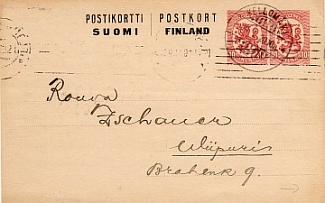 POSTIKORTTI POSTKORT
SUOMI FINLAND
Rouva
Zschauer
Wiipuris
Brahenk 9.